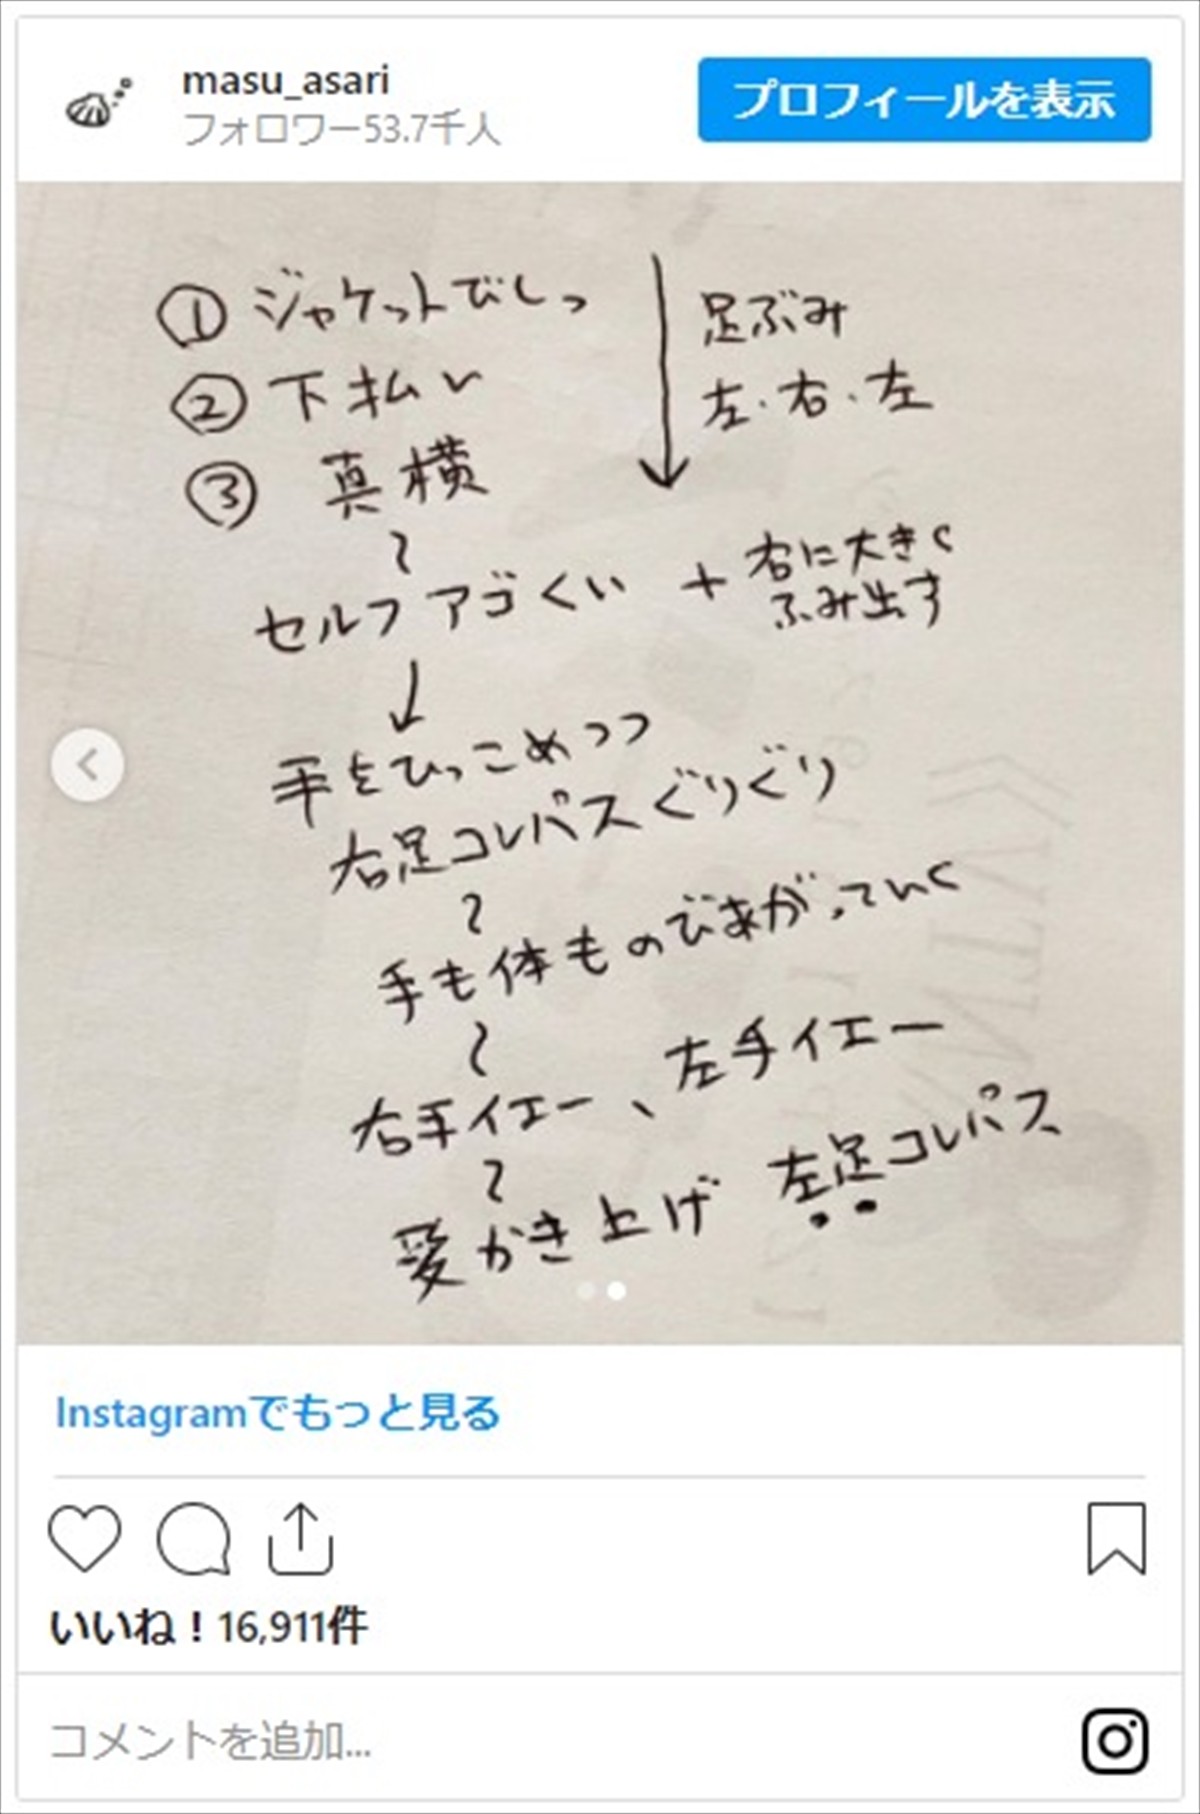 masu_asari
フォロワー53.7千人
プロフィールを表示
① ジャケットびしっ
② 下払い
③ 真横
足ぶみ
左・右・左
〜
セルフアゴくい + 右に大きく
ふみ出す
↓
手をひっこめつつ
右足コンパスぐりぐり
〜
手も体ものびあがっていく
〜
右手イエー、左手イエー
〜
愛かき上げ 左足コンパス
Instagramでもっと見る
いいね！16,911件
コメントを追加...